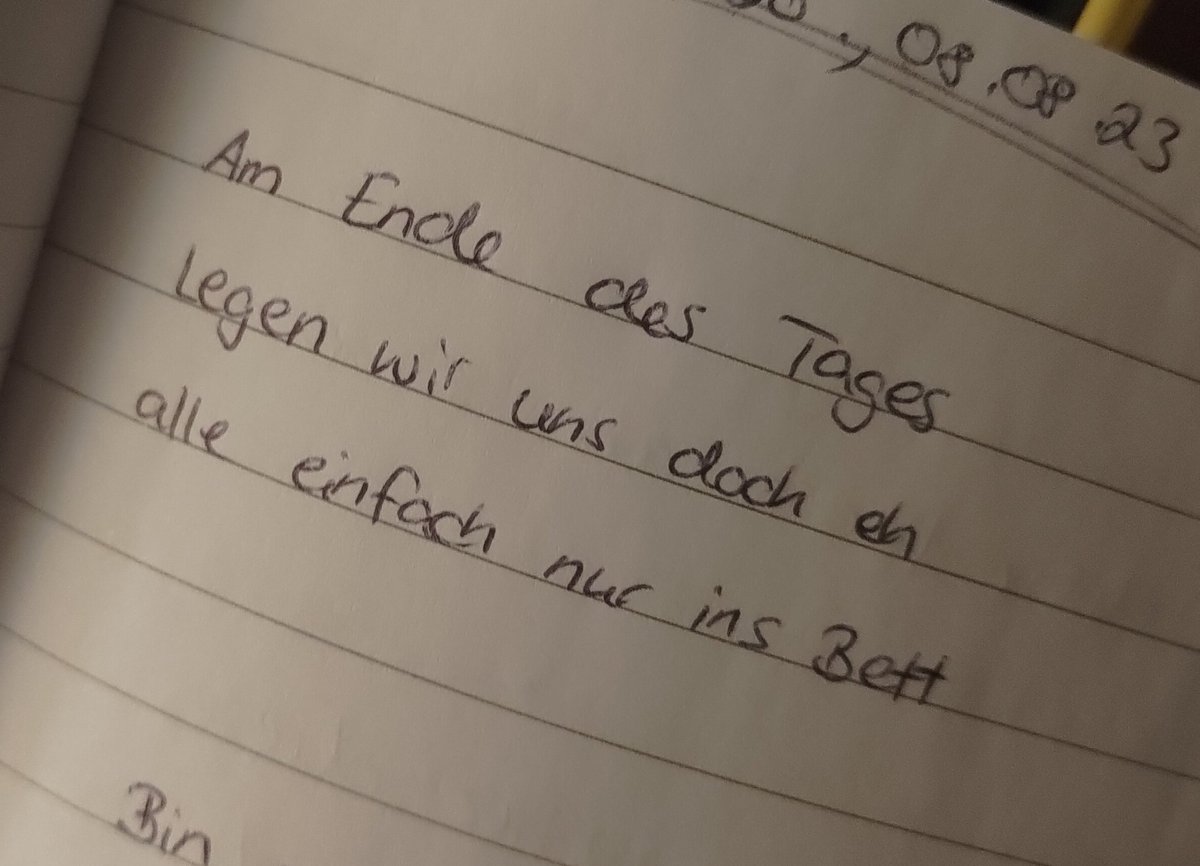 , 08.08.23
Am Ende des Tages
legen wir uns doch eh
alle einfach nur ins Bett
Bin